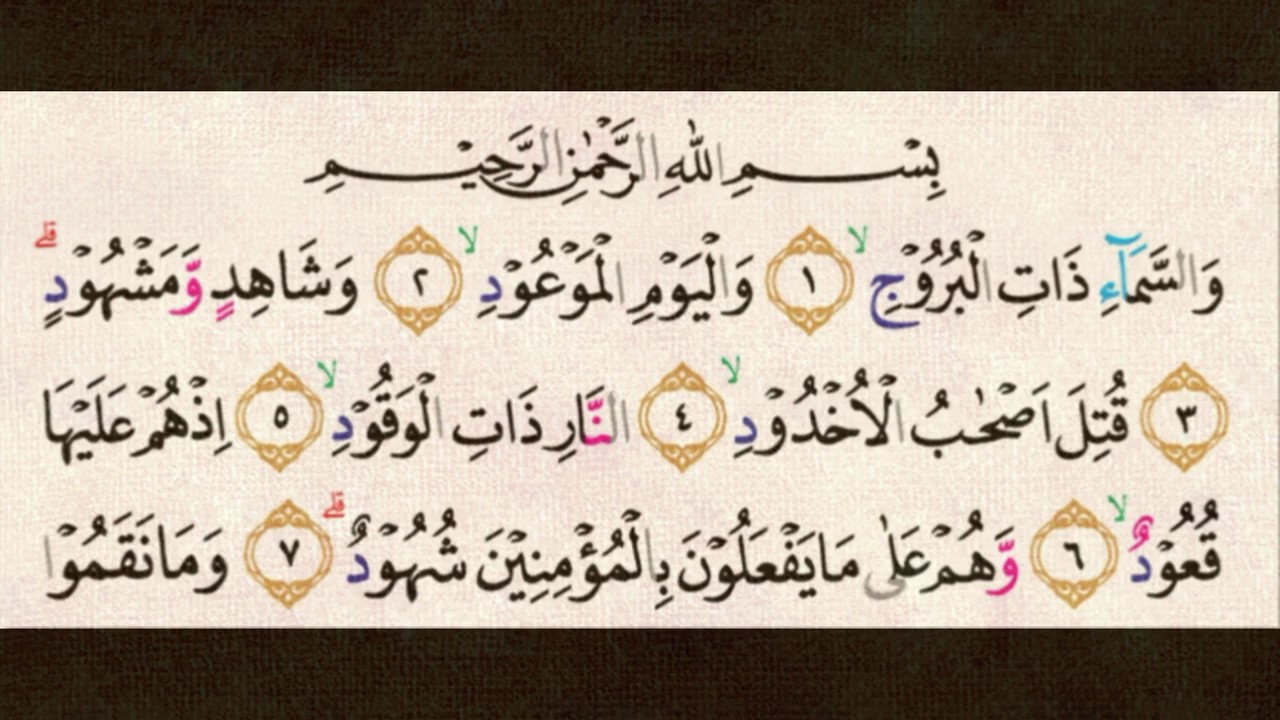 بِسْمِ اللّٰهِ الرَّحْمٰنِ الرَّحِيْمِ
وَالسَّمَآءِ ذَاتِ الْبُرُوْجِ ۙ ١ وَالْيَوْمِ الْمَوْعُوْدِ ۙ ٢ وَشَاهِدٍ وَّمَشْهُوْدٍ ۗ
٣ قُتِلَ اَصْحٰبُ الْاُخْدُوْدِ ۙ ٤ النَّارِ ذَاتِ الْوَقُوْدِ ۙ ٥ اِذْ هُمْ عَلَيْهَا
قُعُوْدٌ ۙ ٦ وَّهُمْ عَلٰى مَا يَفْعَلُوْنَ بِالْمُؤْمِنِيْنَ شُهُوْدٌ ۗ ٧ وَمَا نَقَمُوْا